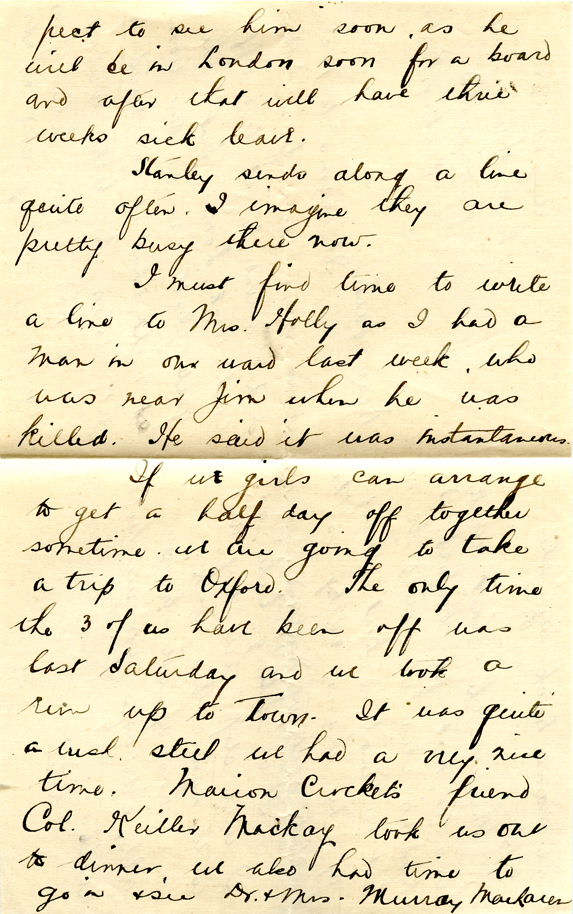 pect to see him soon, as he
will be in London soon for a board
and after that will have three
weeks sick leave.
Stanley sends along a line
quite often. I imagine they are
pretty busy there now.
I must find time to write
a line to Mrs. Holly as I had a
man in our ward last week, who
was near Jim when he was
killed. He said it was instantaneous.
If we girls can arrange
to get a half day off together
sometime. we are going to take
a trip to Oxford. The only time
the 3 of us have been off was
last Saturday and we took a
run up to Town. It was quite
a rush. still we had a very nice
time. Marion Crocket's friend
Col. Keiller Mackay took us out
to dinner, we also had time to
go in & see Dr. & Mrs. Murray MacLaren